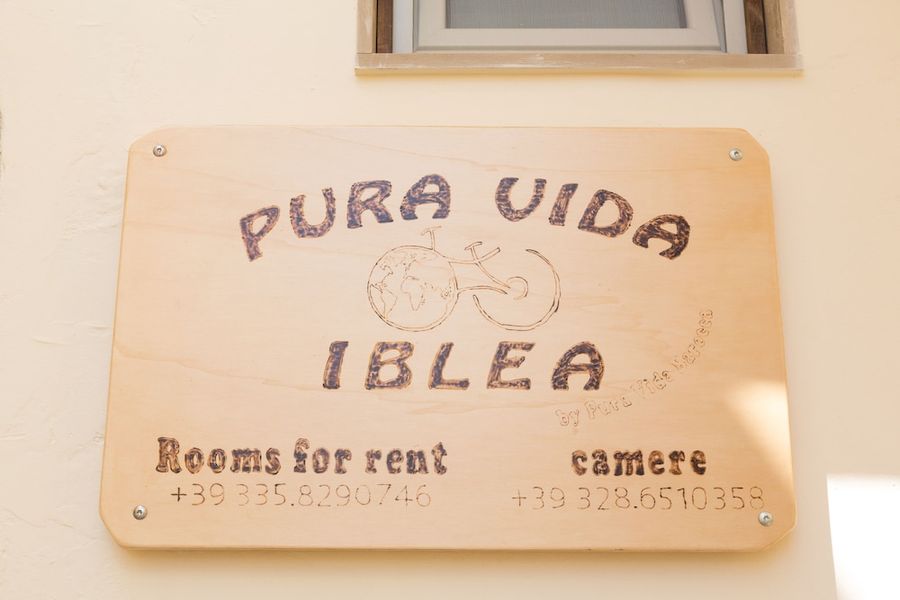 PURA VIDA
IBLEA
by Pura Vida Marocca
Rooms for rent
+39 335.8290746
camere
+39 328.6510358